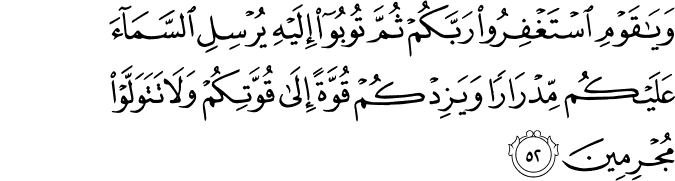 وَيَٰقَوْمِ ٱسْتَغْفِرُوا۟ رَبَّكُمْ ثُمَّ تُوبُوٓا۟ إِلَيْهِ يُرْسِلِ ٱلسَّمَآءَ
عَلَيْكُم مِّدْرَارًا وَيَزِدْكُمْ قُوَّةً إِلَىٰ قُوَّتِكُمْ وَلَا تَتَوَلَّوْا۟
مُجْرِمِينَ ٥٢